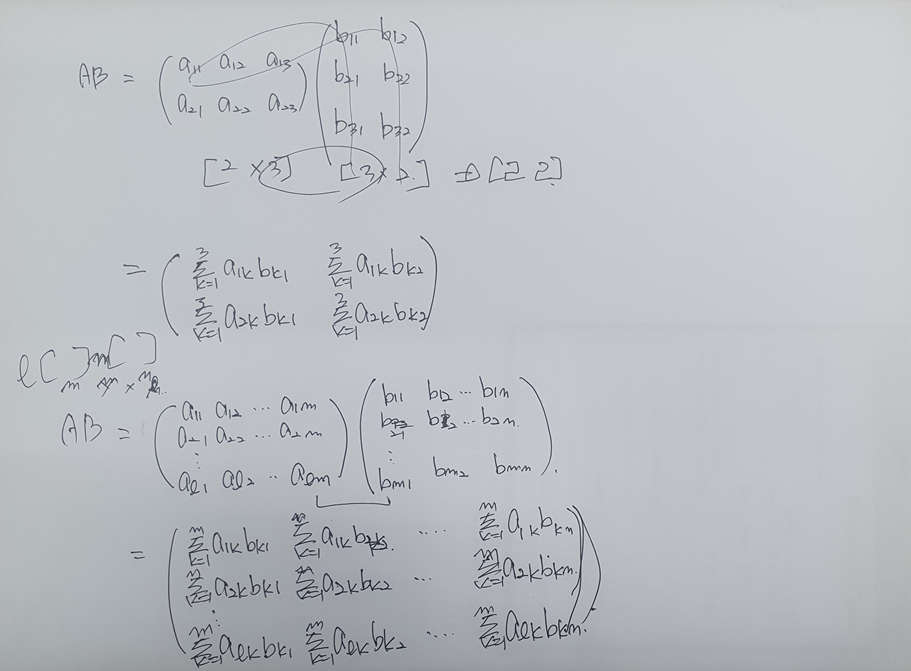 AB = ( a11 a12 a13 ) ( b11 b12
a21 a22 a23 b21 b22
b31 b32 )
[2 × 3] [3 × 2] → [2 2]
= ( ∑_{k=1}^{3} a1k bk1 ∑_{k=1}^{3} a1k bk2
∑_{k=1}^{3} a2k bk1 ∑_{k=1}^{3} a2k bk2 )
l [ ] m [ ]
m
AB = ( a11 a12 ... a1m ) ( b11 b12 ... b1n
a21 a22 ... a2m b21 b22 ... b2n
⋮ ⋮
al1 al2 .. alm bm1 bm2 bmn ).
= ( ∑_{k=1}^{m} a1k bk1 ∑_{k=1}^{m} a1k bk2. .... ∑_{k=1}^{m} a1k bkn
∑_{k=1}^{m} a2k bk1 ∑_{k=1}^{m} a2k bk2 ... ∑_{k=1}^{m} a2k bkn.
⋮
∑_{k=1}^{m} alk bk1 ∑_{k=1}^{m} alk bk2 .... ∑_{k=1}^{m} alk bkn. )